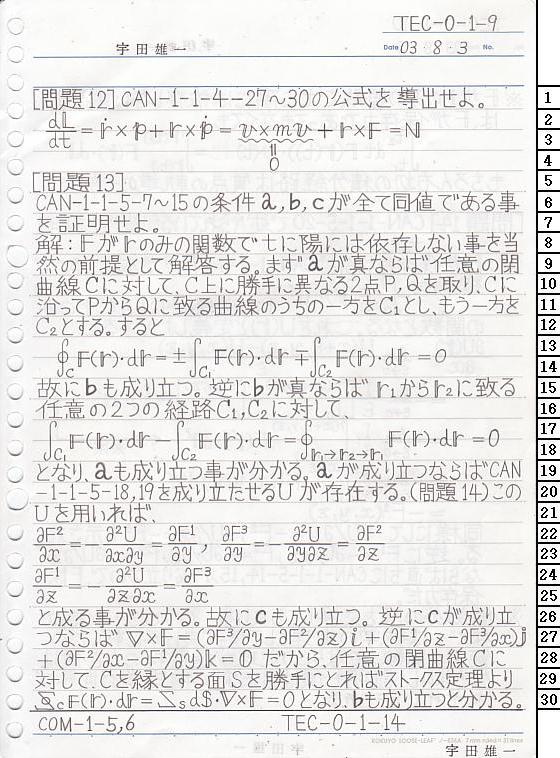 TEC-0-1-9
宇田雄一
Date 03・8・3 No.
[問題12] CAN-1-1-4-27～30の公式を導出せよ。
d𝕃/dt = ṙ×p + r×ṗ = v×mv + r×F = N
॥
0
[問題13]
CAN-1-1-5-7～15の条件a,b,cが全て同値である事
を証明せよ。
解:Fがrのみの関数でtに陽には依存しない事を当
然の前提として解答する。まずaが真ならば任意の閉
曲線Cに対して、C上に勝手に異なる2点P,Qを取り、Cに
沿ってPからQに致る曲線のうちの一方をC₁とし、もう一方を
C₂とする。すると
∮_C F(r)・dr = ±∫_C₁ F(r)・dr ∓∫_C₂ F(r)・dr = 0
故にbも成り立つ。逆にbが真ならばr₁からr₂に致る
任意の2つの経路C₁,C₂に対して、
∫_C₁ F(r)・dr − ∫_C₂ F(r)・dr = ∮_r₁→r₂→r₁ F(r)・dr = 0
となり、aも成り立つ事が分かる。aが成り立つならばCAN
-1-1-5-18,19を成り立たせるUが存在する。(問題14)この
Uを用いれば、
∂F²/∂x = −∂²U/∂x∂y = ∂F¹/∂y , ∂F³/∂y = −∂²U/∂y∂z = ∂F²/∂z
∂F¹/∂z = −∂²U/∂z∂x = ∂F³/∂x
と成る事が分かる。故にcも成り立つ。逆にcが成り立
つならば ∇×F = (∂F³/∂y−∂F²/∂z)i + (∂F¹/∂z−∂F³/∂x)j
+(∂F²/∂x−∂F¹/∂y)k = 0 だから、任意の閉曲線Cに
対して、Cを縁とする面Sを勝手にとればストークス定理より
∮_C F(r)・dr = ∫_S dS・∇×F = 0となり、bも成り立つと分かる。
COM-1-5,6 TEC-0-1-14
KOKUYO LOOSE-LEAF ノ-836A 7mm ruled × 31 lines
宇田雄一
1
2
3
4
5
6
7
8
9
10
11
12
13
14
15
16
17
18
19
20
21
22
23
24
25
26
27
28
29
30